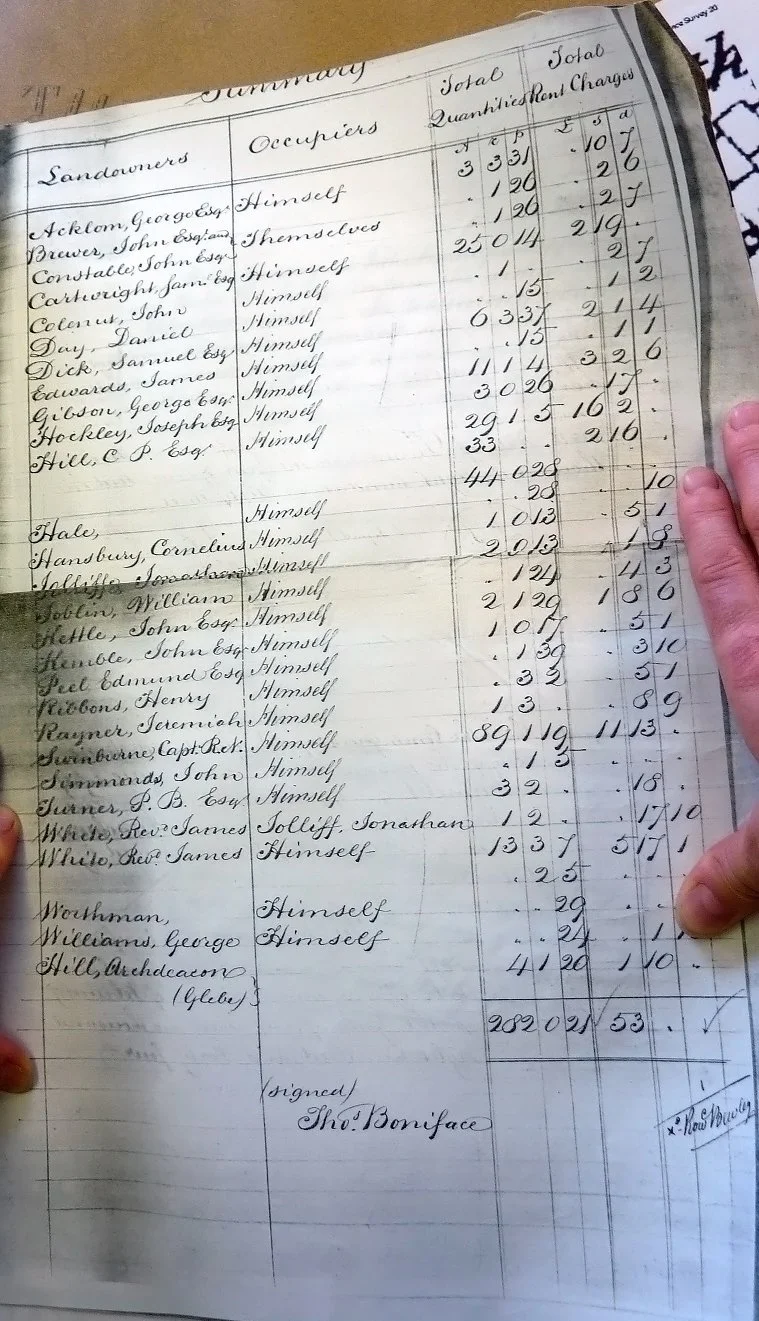 Summary
Landowners Occupiers Total Quantities Total Rent Charges
A r p £ s d
Acklom, George Esqr. Himself 3 3 31 . 10 7
Brewer, John Esqr. and Themselves . 1 26 . 2 6
Constable, John Esqr. . 1 26 . 2 7
Cartwright, Jams. Esq Himself 25 0 14 2 19 .
Colenut, John Himself . 1 . . 2 7
Day, Daniel Himself . . 15 . 1 2
Dick, Samuel Esqr. Himself 6 3 37 2 1 4
Edwards, James Himself . . 15 . 1 1
Gibson, George Esqr. Himself 11 1 4 3 2 6
Hockley, Joseph Esqr. Himself 3 0 26 . 17 .
Hill, C. P. Esqr. Himself 29 1 5 16 2 .
33 . . 2 16 .
44 0 28 . . .
Hale, Himself . . 28 . . 10
Hansbury, Cornelius Himself 1 0 13 . 5 1
Jolliffe Jonathan Himself 2 0 13 . 1 8
Joblin, William Himself . 1 24 . 4 3
Kettle, John Esqr. Himself 2 1 29 1 8 6
Kemble, John Esqr. Himself 1 0 17 . 5 1
Peel Edmund Esq Himself . 1 39 . 3 10
Ribbons, Henry Himself . 3 2 . 5 1
Rayner, Jeremiah Himself 1 3 . . 8 9
Swinburne, Capt. R.N. Himself 89 1 19 11 13 .
Simmonds, John Himself . 1 5 . . .
Turner, P. B. Esqr. Himself 3 2 . . 18 .
White, Revd. James Jolliff, Jonathan 1 2 . . 17 10
White, Revd. James Himself 13 3 7 5 17 1
. 2 5
Worthman, Himself . . 29
Williams, George Himself . . 24 . 1
Hill, Archdeacon (Glebe) 4 1 20 1 10 .
282 0 21 53 .
(signed)
Thos. Boniface